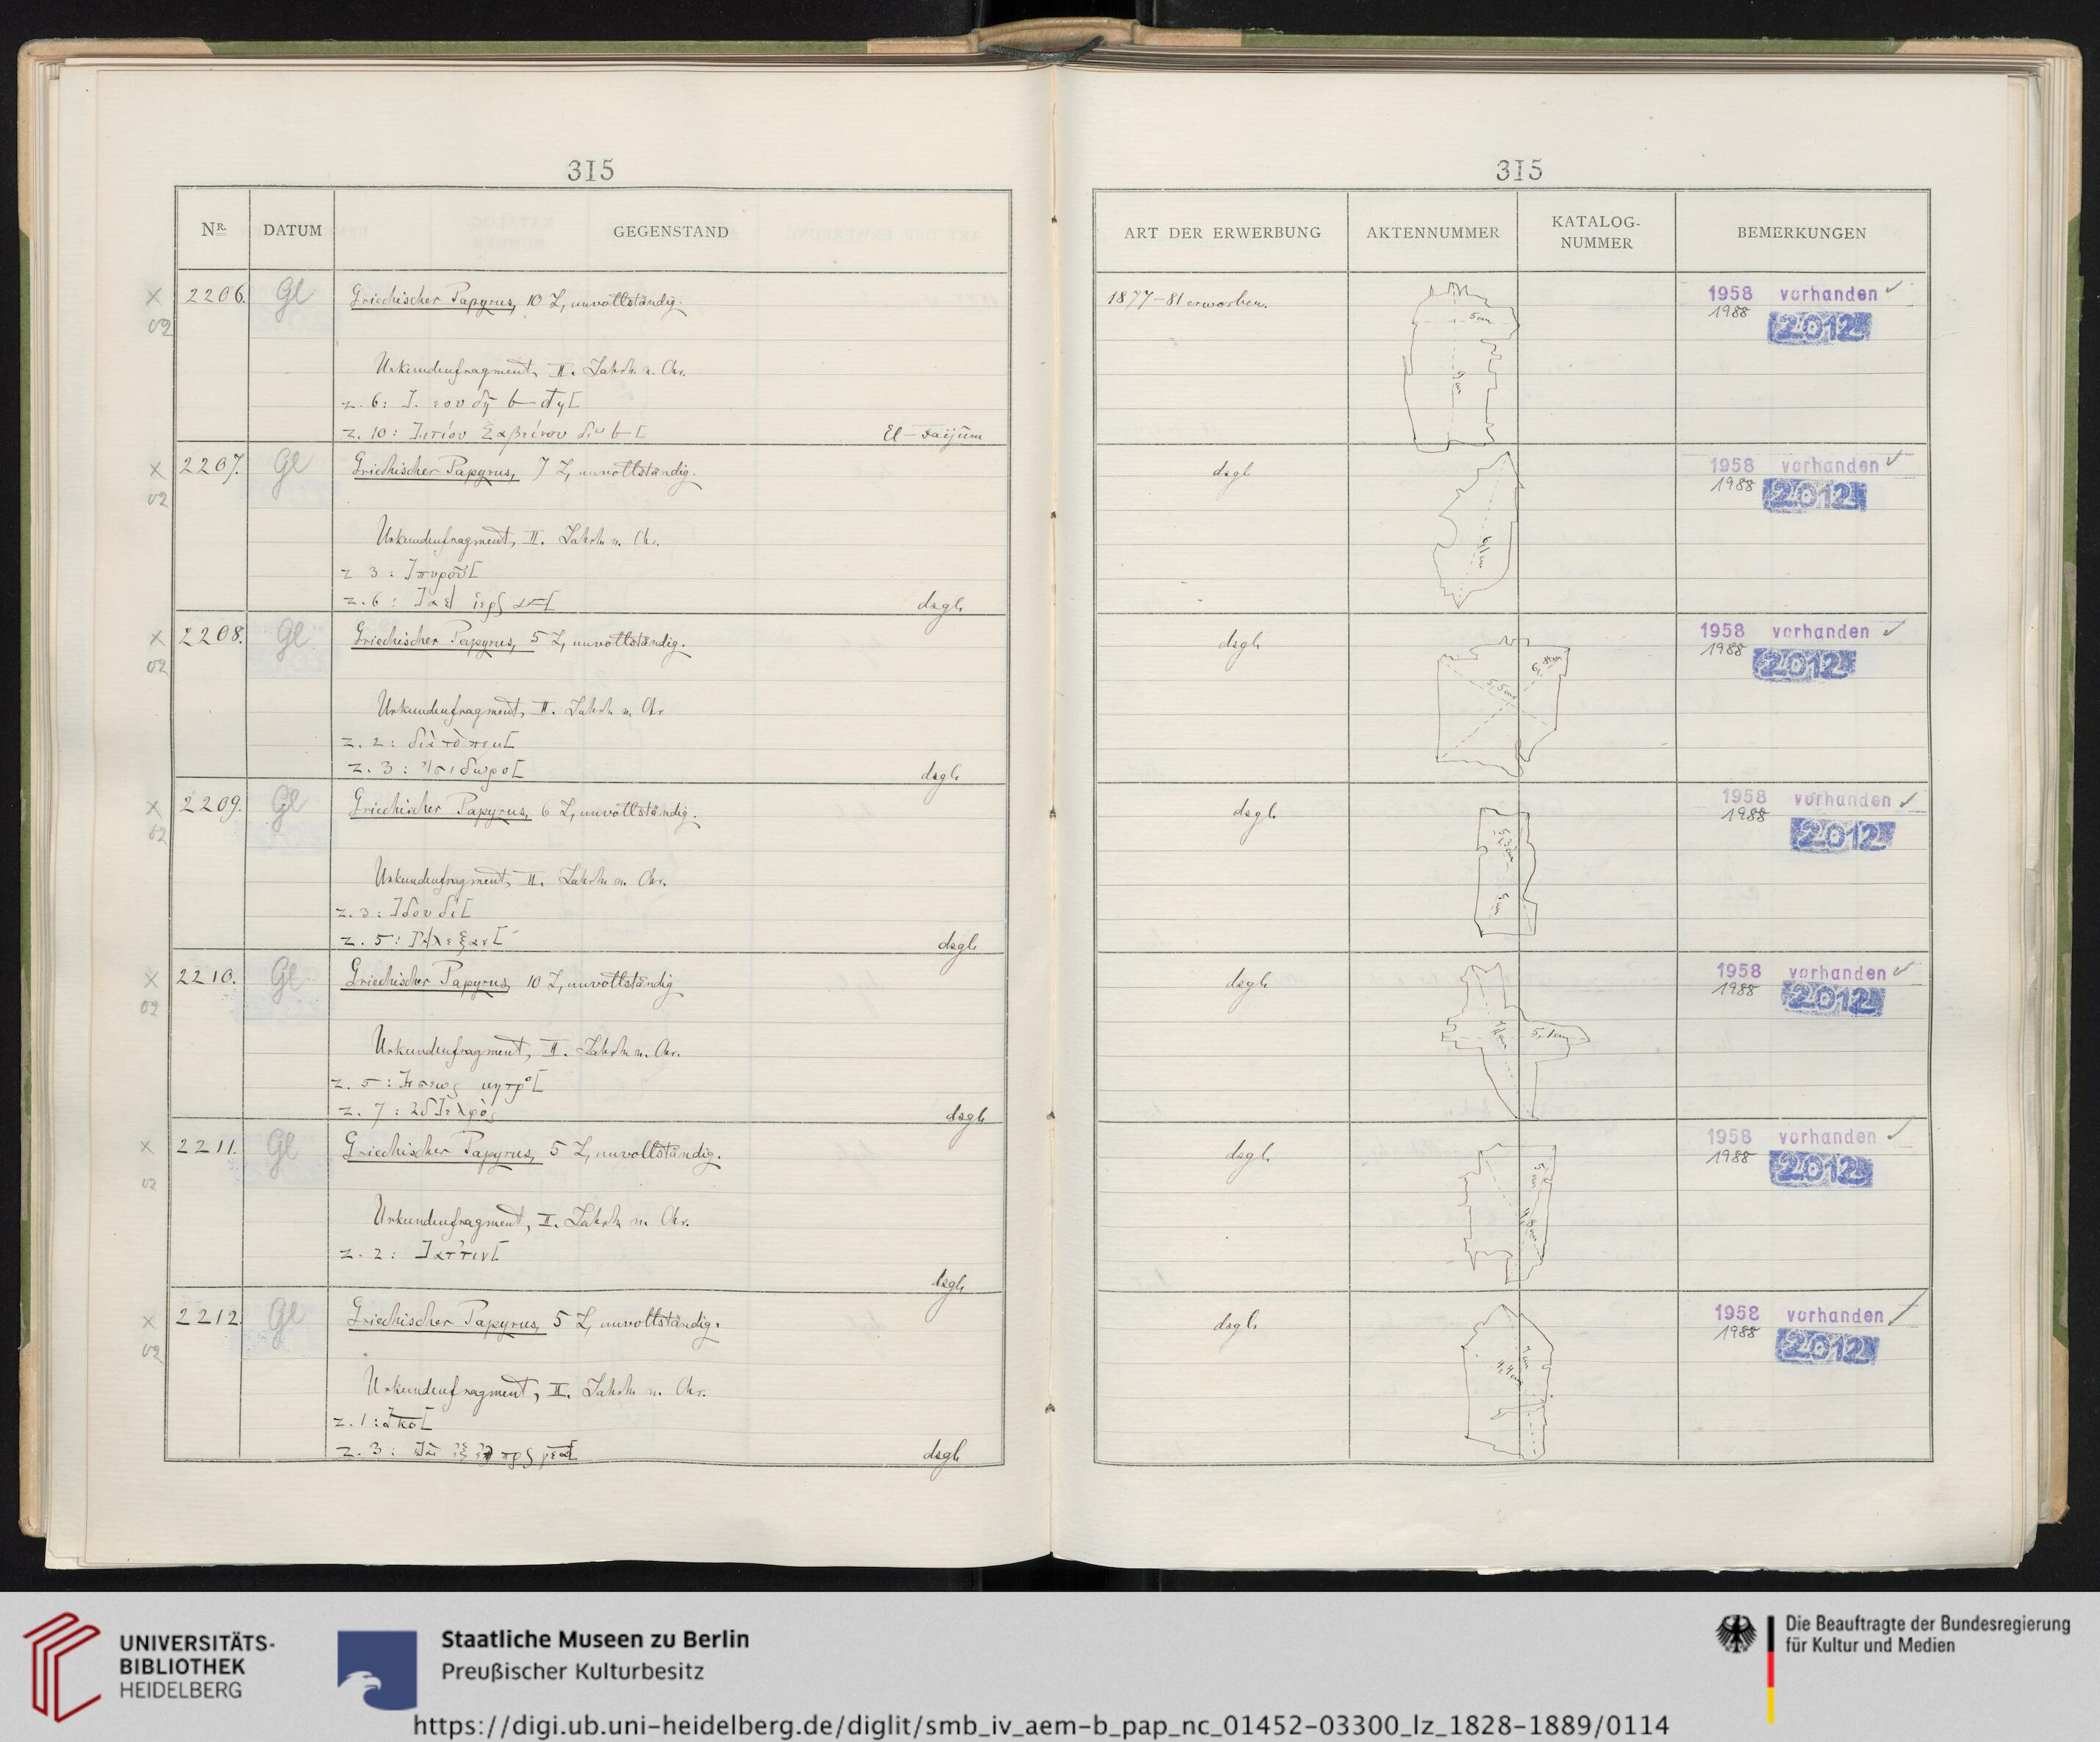 315
Nr. DATUM GEGENSTAND
× 2206. Gl Griechischer Papyrus, 10 Z, unvollständig.
02
Urkundenfragment, II. Jahrh. n. Chr.
z. 6:
z. 10: Σαβείνου El-Faijûm
× 2207. Gl Griechischer Papyrus, 7 Z, unvollständig.
02
Urkundenfragment, II. Jahrh. n. Chr.
z 3: ]πυροῦ[
z. 6: dsgl.
× 2208. Gl Griechischer Papyrus, 5 Z, unvollständig.
02
Urkundenfragment, II. Jahrh. n. Chr
z. 2:
z. 3: Ἰσιδωρο[ dsgl.
× 2209. Gl Griechischer Papyrus, 6 Z, unvollständig.
02
Urkundenfragment, II. Jahrh. n. Chr.
z. 3: ]δου δι[
z. 5: dsgl.
× 2210. Gl Griechischer Papyrus, 10 Z, unvollständig
02
Urkundenfragment, II. Jahrh. n. Chr.
z. 5:
z. 7: dsgl.
× 2211. Gl Griechischer Papyrus, 5 Z, unvollständig.
02
Urkundenfragment, II. Jahrh. n. Chr.
z. 2:
dsgl.
× 2212. Gl Griechischer Papyrus, 5 Z, unvollständig.
02
Urkundenfragment, II. Jahrh. n. Chr.
z. 1:
z. 3: dsgl.
315
ART DER ERWERBUNG AKTENNUMMER KATALOG-NUMMER BEMERKUNGEN
1877-81 erworben. 5cm 9cm 1958 vorhanden ✓
1988 2012
dsgl. 1958 vorhanden ✓
1988 2012
dsgl. 5,5cm 1958 vorhanden ✓
1988 2012
dsgl. 5cm 1958 vorhanden ✓
1988 2012
dsgl. 5,1cm 1958 vorhanden ✓
1988 2012
dsgl. 1958 vorhanden ✓
1988 2012
dsgl. 4,4cm 1958 vorhanden ✓
1988 2012
UNIVERSITÄTS-
BIBLIOTHEK
HEIDELBERG
Staatliche Museen zu Berlin
Preußischer Kulturbesitz
Die Beauftragte der Bundesregierung
für Kultur und Medien
https://digi.ub.uni-heidelberg.de/diglit/smb_iv_aem-b_pap_nc_01452-03300_lz_1828-1889/0114